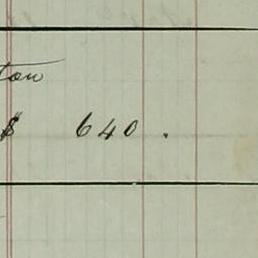 ton
$ 640.